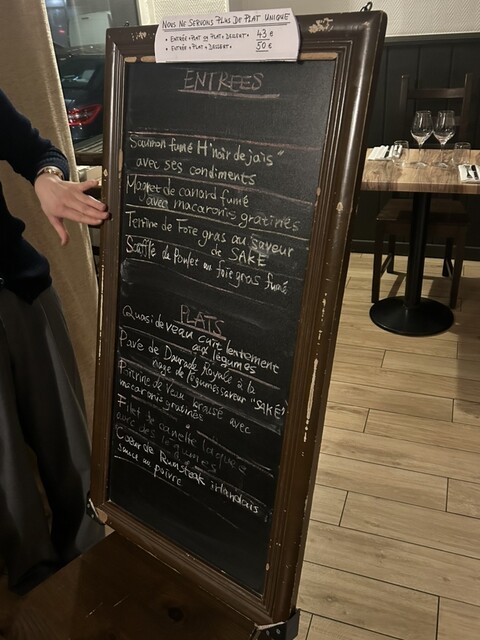 NOUS NE SERVONS PLAS DE PLAT UNIQUE
• ENTRÉE + PLAT OU PLAT + DESSERT = 43 €
• ENTRÉE + PLAT + DESSERT = 50 €
ENTREES
Saumon fumé H "noir de jais"
avec ses condiments
Magret de canard fumé
avec macaronis gratinés
Terrine de Foie gras au saveur
de SAKE
Soufflé du Poulet au foie gras fumé
PLATS
Quasi de veau cuit lentement
aux légumes
Pavé de Daurade Royale à la
nage de légumes saveur "SAKÉ"
de Veau braisé avec
macaronis gratinés
Filet de canette laquée
avec des légumes
Coeur de Rumsteak irlandais
sauce au poivre